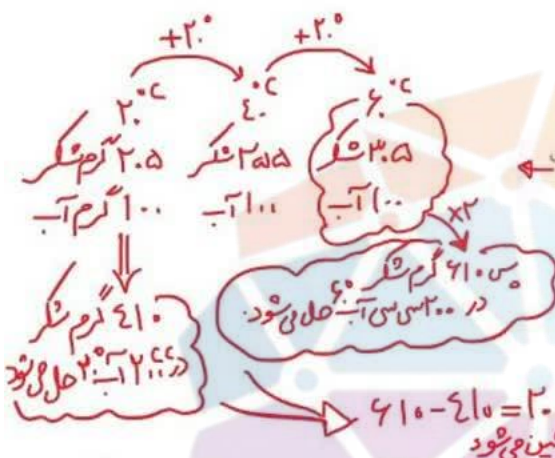 +۲۰° +۲۰°
۲۰°C ۴۰°C ۶۰°C
۲۰۵ گرم شکر ۲۵۵ شکر ۳۰۵ شکر
۱۰۰ گرم آب ۱۰۰ آب ۱۰۰ آب
×۲
پس ۶۱۰ گرم شکر
در ۲۰۰ سی سی آب ۶۰° حل می‌شود.
۴۱۰ گرم شکر
در ۲۰۰cc آب ۲۰° حل می‌شود
۶۱۰-۴۱۰=۲۰
می‌شود